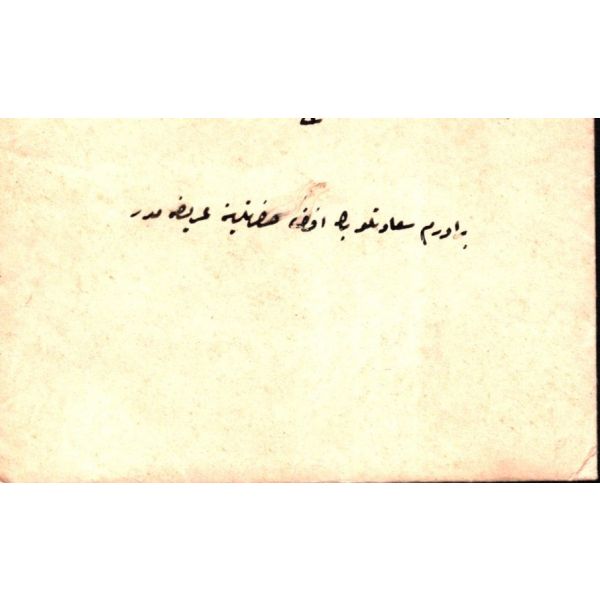 برادرم سعادتلو بك افندی حضرتلرینه عریضه مدر